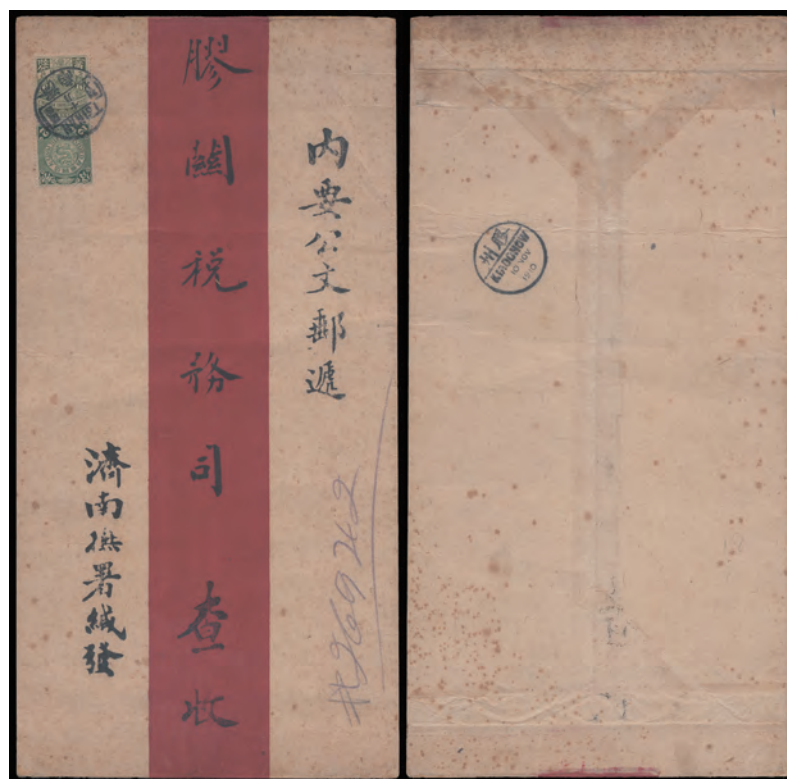 內要公文郵遞
膠關税務司 查收
濟南撫署緘發
州膠
KIAOCHOW
10 NOV